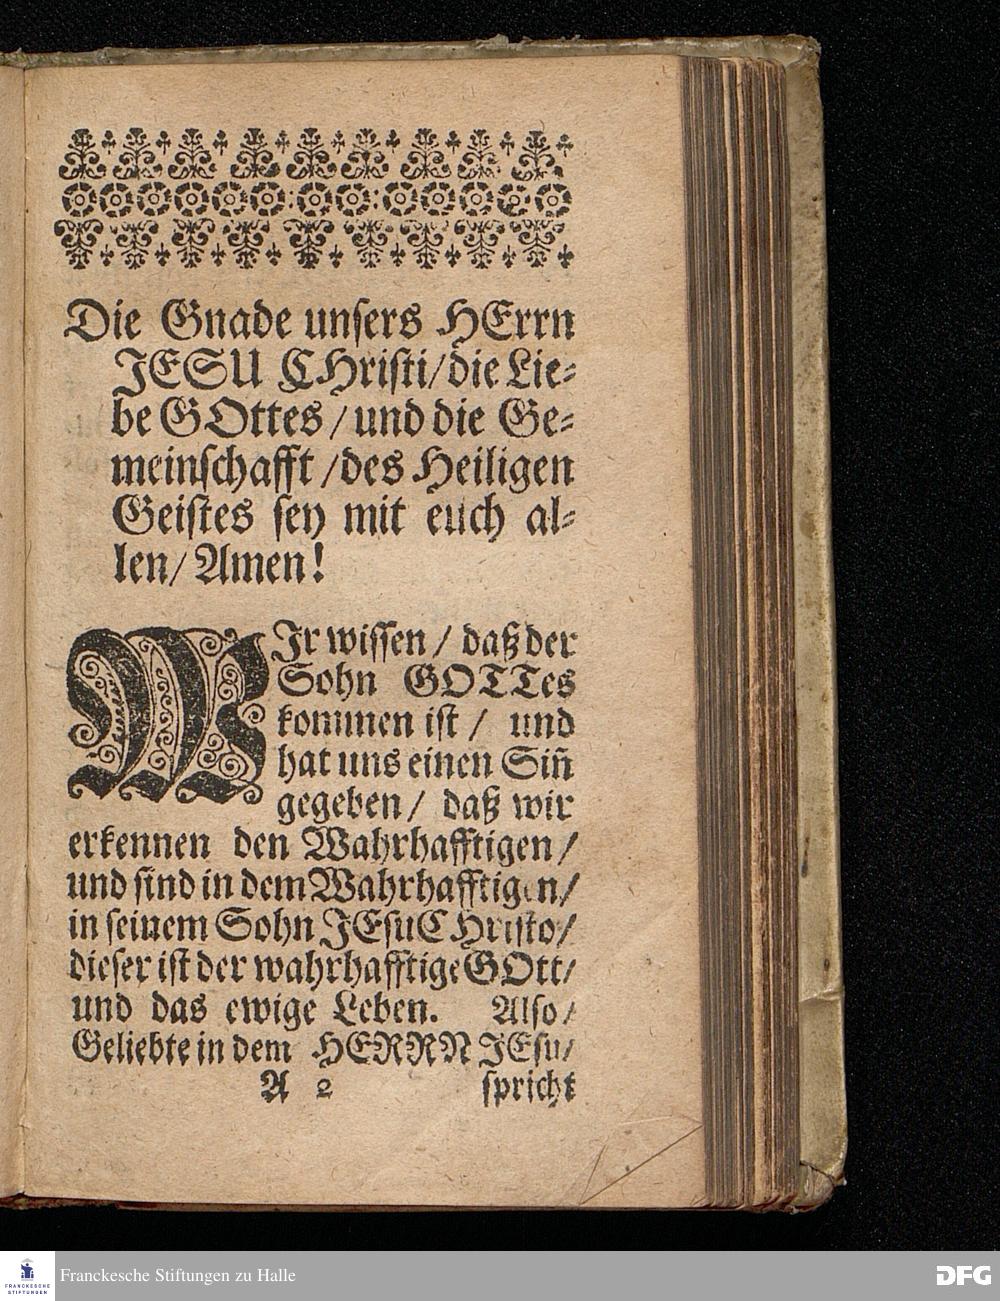 Die Gnade unsers HErrn
JESU CHristi/die Lie-
be GOttes/und die Ge-
meinschafft/des Heiligen
Geistes sey mit euch al-
len/Amen!
WIr wissen/daß der
Sohn GOTTes
kommen ist/und
hat uns einen Siñ
gegeben/daß wir
erkennen den Wahrhafftigen/
und sind in dem Wahrhafftigen/
in seinem Sohn JEsu CHristo/
dieser ist der wahrhafftige GOtt/
und das ewige Leben. Also/
Geliebte in dem HERRN JEsu/
A 2 spricht
FRANCKESCHE
STIFTUNGEN
Franckesche Stiftungen zu Halle
DFG